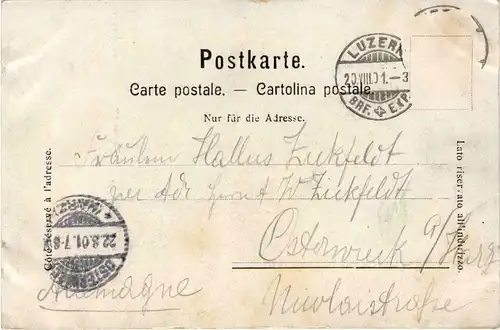 Postkarte.
Carte postale. — Cartolina postale.
Nur für die Adresse.
LUZERN
20.VIII.01.—3
BRF. EXP.
Côté réservé à l'adresse.
Lato riservato all'indirizzo.
Fräulein Zickfeldt
per Adr Herrn W Zickfeldt
Osterwieck a/Harz
Nicolaistraße
Allemagne
OSTERWIECK
22.8.01.7-8
(HARZ)